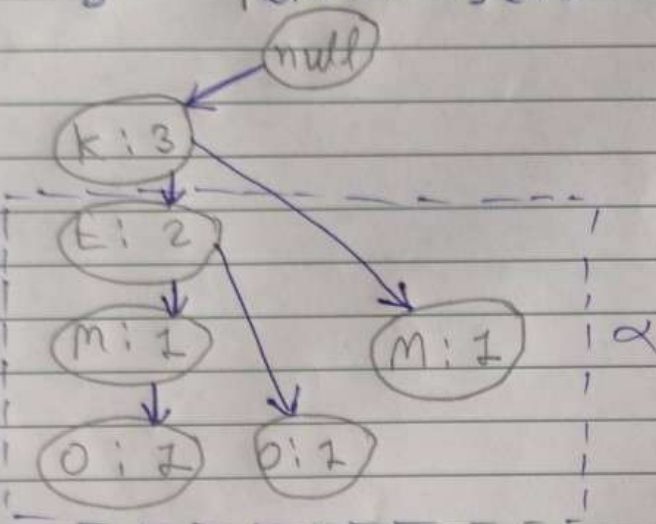 null
K : 3
E : 2
M : 1
M : 1
α
O : 1
O : 1